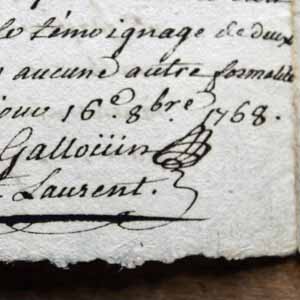 le témoignage de deux
aucune autre formalité
16.e 8.bre 1768.
Galloüin
Laurent.